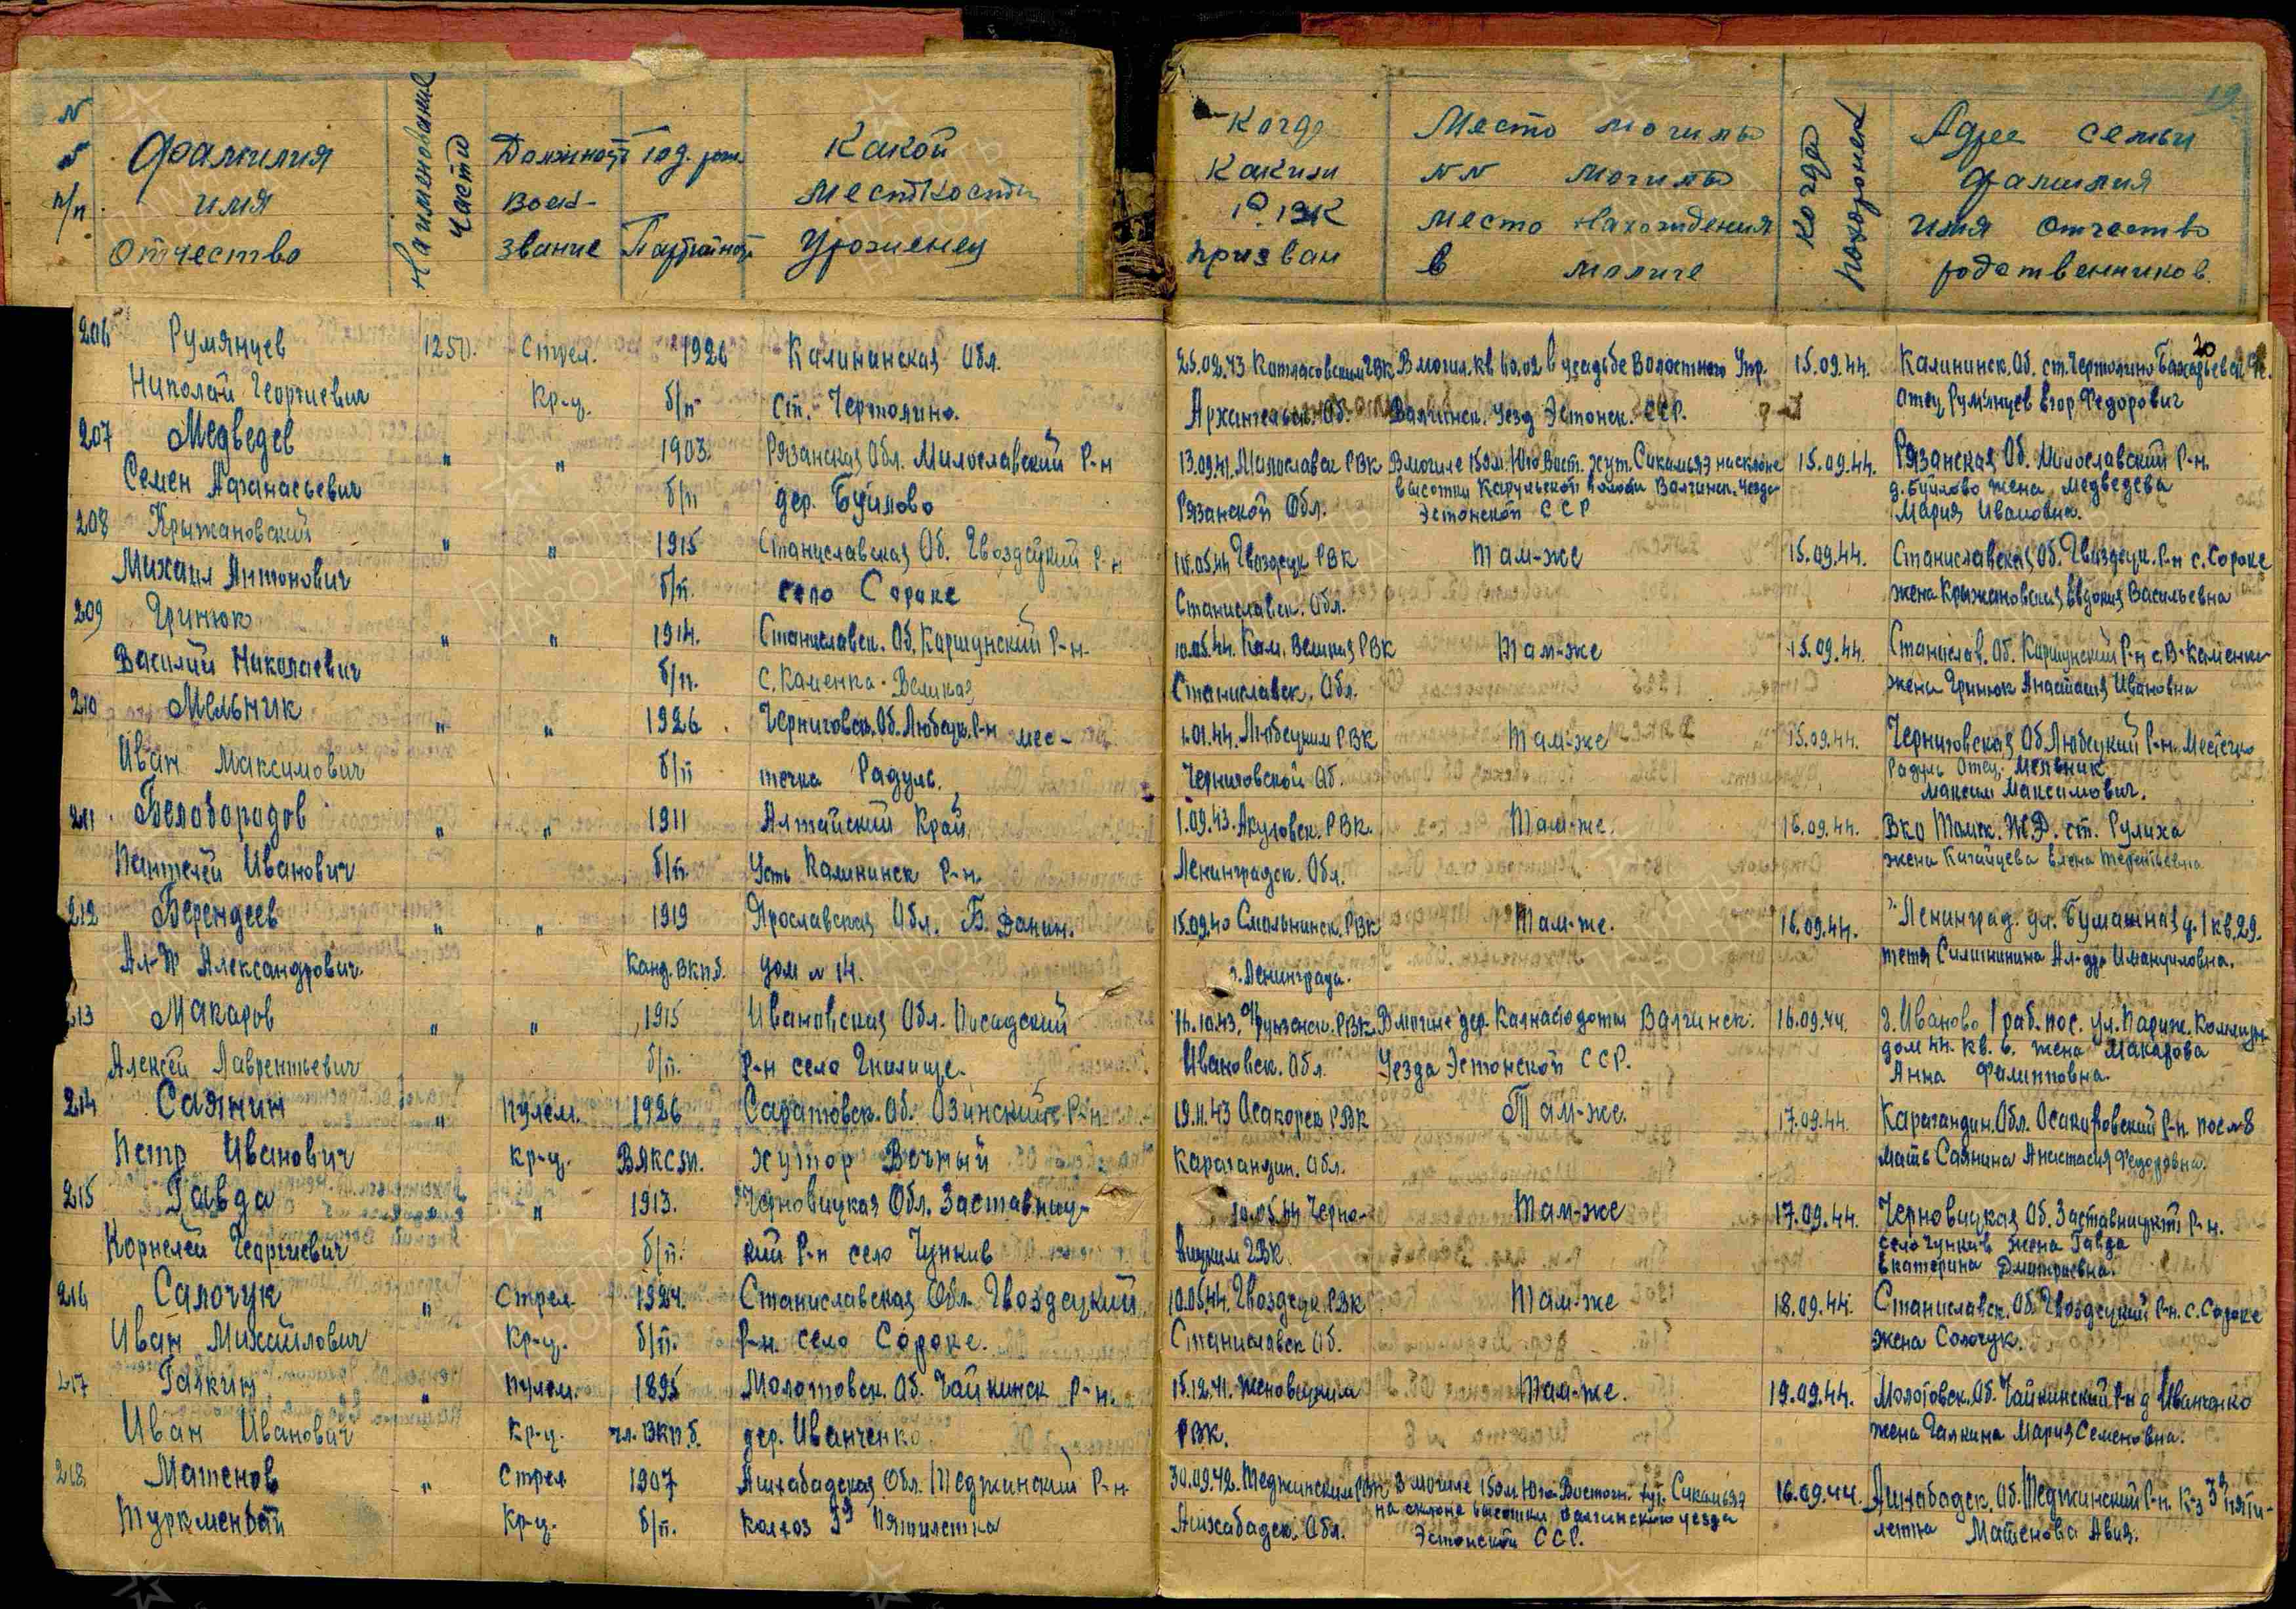 N
п/п
Фамилия
имя
Отчество
Наименование
части
Должност
воен-
звание
Год. рож.
Партийност
Какой
местности
Уроженец
Когда
Каким
РВК
призван
Место могилы
NN могилы
место нахождения
в могиле
Когда
похоронен
19
Адрес семьи
фамилия
имя отчество
родственников.
20
206 Румянцев 1250. Стрел. 1926 Калининская Обл. 25.02.43 Котласовским ГВК В могил. кв 60.02 в усадьбе Волостного Упр. 15.09.44. Калининск. Об. ст. Чертолино
Николай Георгиевич Кр-ц. б/п ст. Чертолино. Архангельск. Об. Валгинск. Уезд Эстонск. ССР. отец Румянцев Егор Федорович
207 Медведев " " 1903. Рязанская Обл. Милославский Р-н 13.09.41. Милославск РВК В могиле 150 м. Юго Вост. хут. Сикамьяэ на склоне 15.09.44. Рязанская Об. Милославский Р-н.
Семен Афанасьевич б/п дер. Буйлово Рязанской Обл. высотки Карульской волости Валгинск. Уезда д. Буйлово жена Медведева
Эстонской ССР Мария Ивановна.
208 Крыжановский " " 1915 Станиславская Об. Гвоздецкий Р-н 10.05.44 Гвоздецк РВК Там-же 15.09.44. Станиславская Об. Гвоздецк. Р-н с. Сороке
Михаил Антонович б/п. село Сороке Станиславск. Обл. жена Крыжановская Евдокия Васильевна
209 Гринюк " " 1914. Станиславск. Об. Коршунский Р-н. 10.05.44. Кам. Великая РВК Там-же 15.09.44. Станислав. Об. Коршунский Р-н с. В-Каменка
Василий Николаевич б/п. с. Каменка-Великая Станиславск. Обл. жена Гринюк Анастасия Ивановна
210 Мельник " " 1926 Черниговск. Об. Любецк. Р-н мес- 1.01.44. Любецким РВК Там-же 15.09.44. Черниговская Об Любецкий Р-н. Местечко
Иван Максимович б/п течка Радуль. Черниговской Об. Радуль Отец. Мельник
Максим Максимович.
211 Белобородов " " 1911 Алтайский Край, 1.09.43. Акуловск. РВК. Там-же. 16.09.44. Вко Томск. Ж.Д. ст. Рулиха
Пантелей Иванович б/п. Усть Калининск Р-н. Ленинградск. Обл. жена Китайцева Елена Терентьевна
212 Берендеев " " 1919 Ярославская Обл. Б. Данин. 15.09.40 Смольнинск. РВК Там-же. 16.09.44. г. Ленинград. ул. Бумажная д. 1 кв. 29.
Ал-др Александрович Канд. ВКП.б. дом N 14. г. Ленинграда. тетя Ал-др
213 Макаров " " 1915 Ивановская Обл. Посадский 16.10.43. Фрунзенск. РВК В могиле дер. Валгинск. 16.09.44. г. Иваново 1 раб. пос. ул. Париж. Коммун
Алексей Лаврентьевич б/п. Р-н село Гнилище. Ивановск. Обл. Уезда Эстонской ССР. дом 44. кв. 6. жена Макарова
Анна Филипповна.
214 Саянин " Пулем. 1926 Саратовск. Об. Озинский Р-н. 19.11.43 Осакорск РВК Там-же. 17.09.44. Карагандин. Обл. Осакаровский Р-н. пос N 8
Петр Иванович Кр-ц. ВЛКСМ. хутор Вечный Карагандин. Обл. мать Саянина Анастасия Федоровна.
215 Гавда " " 1913. Черновицкая Обл. Заставниц- 10.05.44 Черно- Там-же 17.09.44. Черновицкая Об. Заставницкий Р-н.
Корнелей Георгиевич б/п. кий Р-н село Чункив вицким ГВК. село Чункив жена Гавда
Екатерина Дмитриевна.
216 Салочук " Стрел. 1924. Станиславская Обл. Гвоздецкий 10.05.44. Гвоздецк. РВК Там-же 18.09.44. Станиславск. Об. Гвоздецкий Р-н. с. Сороке
Иван Михайлович Кр-ц. б/п. Р-н. село Сороке. Станиславск Об. жена Солочук.
217 Галкин " Пулем. 1895 Молотовск. Об. Чайкинск Р-н. 15.12.41. Там-же. 19.09.44. Молотовск. Об. Чайкинский Р-н д Иванченко
Иван Иванович Кр-ц. чл. ВКП.б. дер. Иванченко РВК. жена Галкина Мария Семеновна.
218 Матенов " Стрел 1907 Ашхабадская Обл. Теджинский Р-н. 30.09.42. Теджинским РВК В могиле 150 м Юго-Восточн. хут. Сикамьяэ 16.09.44. Ашхабадск. Об. Теджинский Р-н. К-з 3я пяти-
Туркменбай Кр-ц. б/п. колхоз 3я Пятилетка Ашхабадск. Обл. на склоне высотки Валгинского уезда летка Матенова Авиз.
Эстонской ССР.